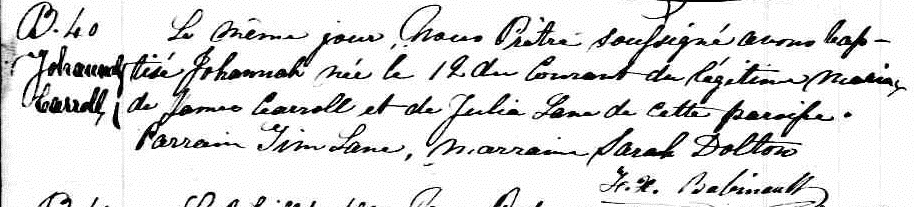 B. 40
Johannah
Carroll
Le même jour, Nous Prêtre soussigné avons bap-
tisé Johannah née le 12 du Courant du légitime maria
de James Carroll et de Julia Lane de cette paroisse.
Parrain Tim Lane, Marraine Sarah Dolton
F. X.